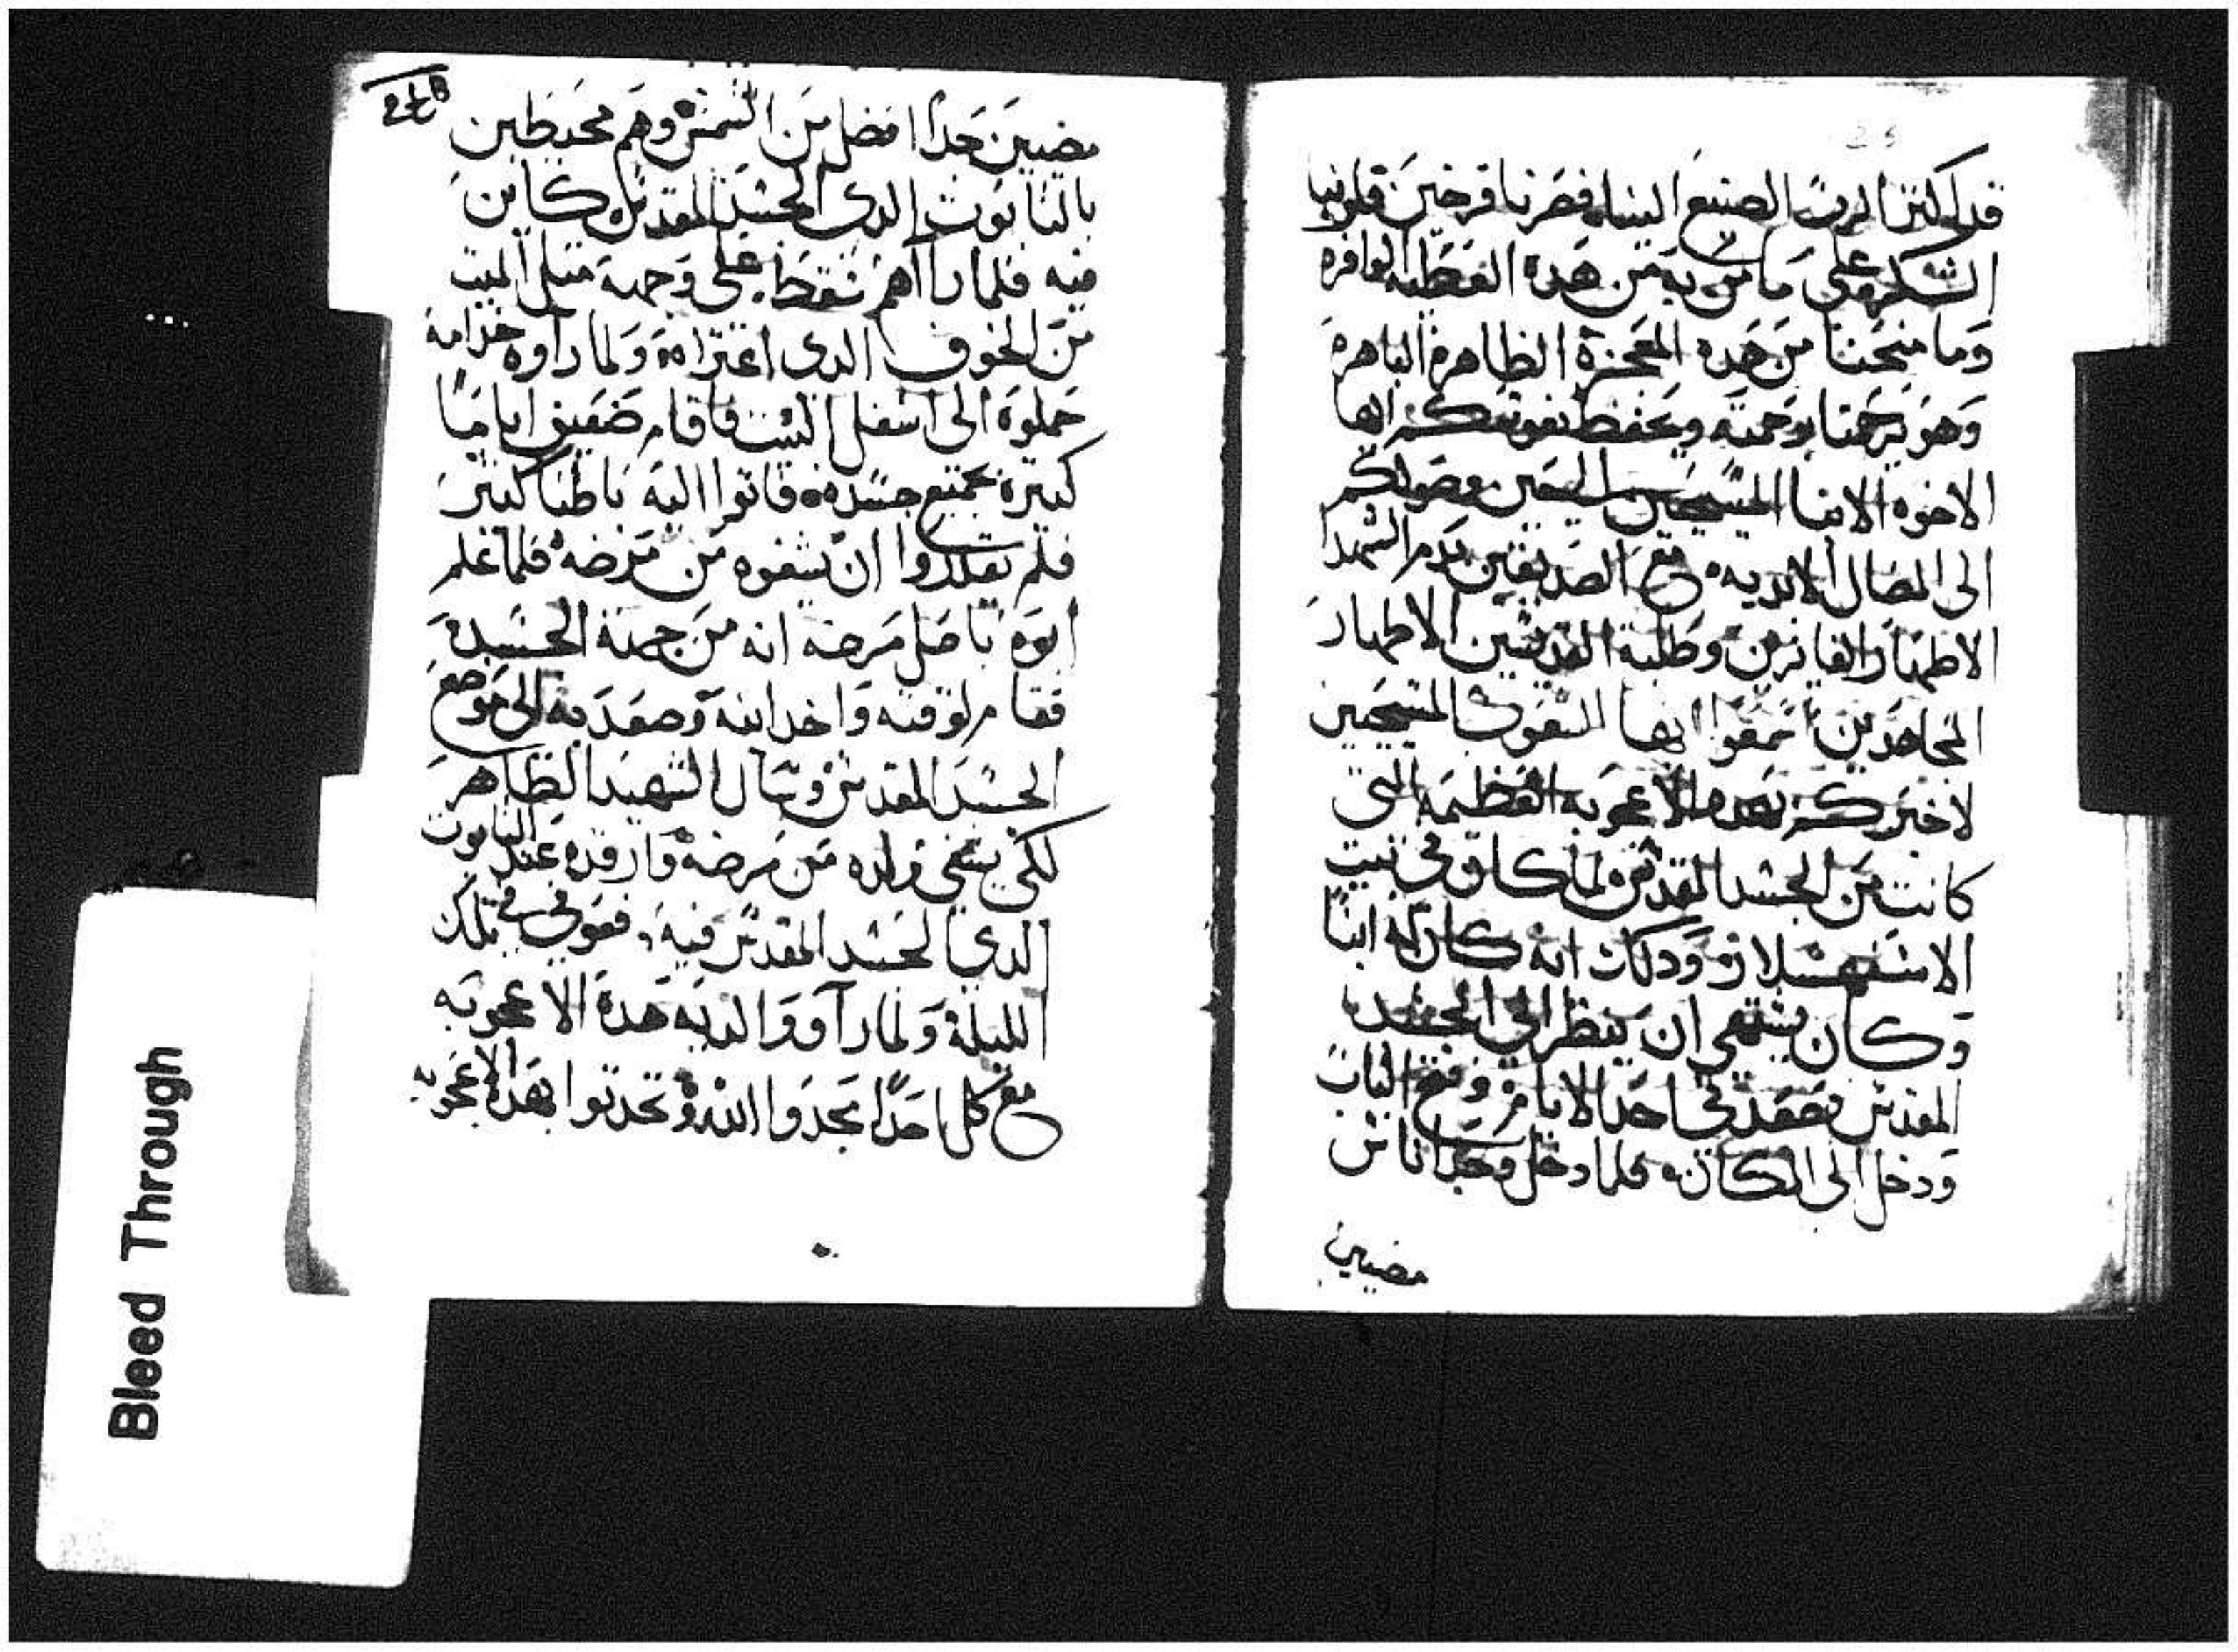 قد اكثر الرب الصنيع الينا فصرنا فرحين قلوبنا
الشكر لله على ما من به من هده العطيه الوافره
وما منحنا من هده المعجزة الظاهرة الباهرة
وهو يرحمنا برحمته ويحفظ نفوسكم ايها
الاخوه الابنا المسيحيين المحبين ووصولكم
الى المضال الابديه مع الصديقين بدم الشهدا
الاطهار الفايزين وطلبة القديسين الاطهار
المجاهدين اسمعوا ايها الشعوب المسيحيين
لاخبركم بهده الاعجوبه العظيمه التي
كانت من الجسد المقدس ولما كان في بيت
الاسفهسلار ودلك انه كان له ابنا
وكان يشتهي ان ينظر الى الجسد
المقدس فصعد في احد الايام وفتح الباب
ودخل الى المكان فلما دخل وجد اناس
مضيين
مضيين جدا افضل من الشمس وهم محيطين
بالتابوت الدي الجسد المقدس كاين
فيه فلما رااهم سقط على وجهه مثل الميت
من الخوف الدي اعتراه ولما راوه خدامه
حملوه الى اسفل البيت فاقام ضعيف اياما
كثيره بجميع جسده فاتوا اليه باطبا كثير
فلم يقدروا ان يشفوه من مرضه فلما علم
ابوه باصل مرضه انه من جهة الجسد
فقام لوقته واخد ابنه وصعد به الى موضع
الجسد المقدس وسال الشهيد الطاهر
لكي يشفي ولده من مرضه وارقده عند التابوت
الدي الجسد المقدس فيه فعوفي في تلك
الليلة ولما راوا والديه هدة الاعجوبه
مع كل احدا مجدوا الله وتحدتوا بهده الاعجوبه
Bleed Through